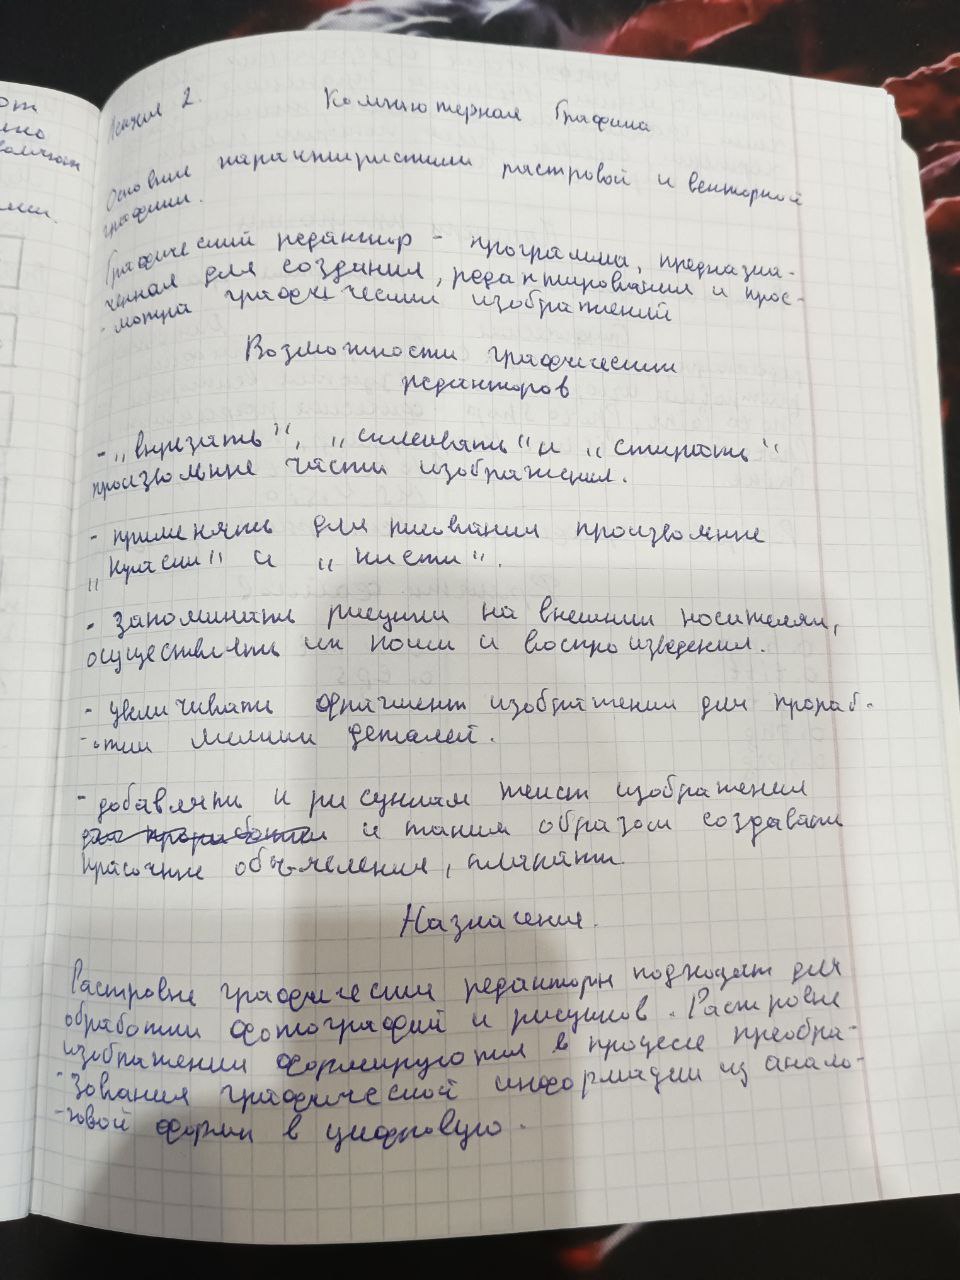 от
Лекция 2. Компьютерная Графика
Основные характеристики растровой и векторной
графики.
Графический редактор - программа, предназна-
ченная для создания, редактирования и прос-
-мотра графических изображений
Возможности графических
редакторов
- „вырезать", „склеивать" и „стирать"
произвольные части изображения.
- применять для рисования произвольные
„краски" и „кисти".
- Запоминать рисунки на внешних носителях,
осуществлять их поиск и воспроизведения.
- увеличивать фрагмент изображения для прораб-
-отки мелких деталей.
- добавлять к рисункам текст изображения
для проработки и таким образом создавать
красочные объявления, плакаты.
Назначения.
Растровые графические редакторы подходят для
обработки фотографий и рисунков. Растровые
изображения формируются в процессе преобра-
-зования графической информации из анало-
-говой формы в цифровую.